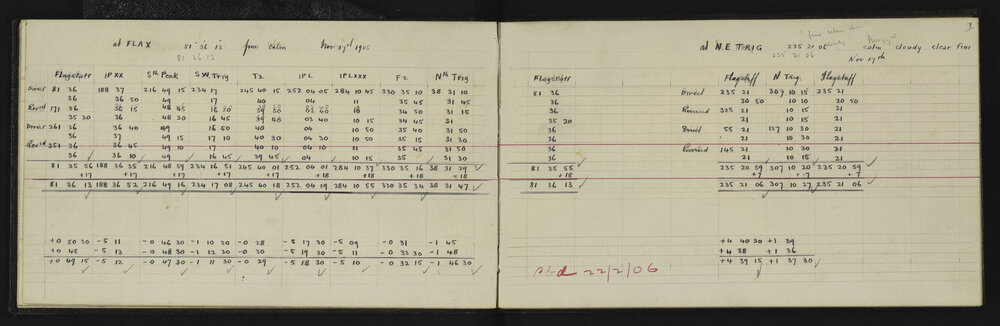 at FLAX 81 36 13 fine calm Nov 17th 1905
81 36 13
Flagstaff IPXX Sth Peak SW Trig T2 IPL IPLXXX F2 Nth Trig
Direct 81 36 188 37 216 49 15 234 17 245 40 15 252 04 05 284 10 45 330 35 10 38 31 10
36 36 50 49 17 40 04 11 35 45 31 45
171 36
35 30 36 48 30 16 45 39 48 03 40 10 15 34 45 31
Direct 261 36 36 40 49 16 50 40 04 10 50 35 40 31 50
36 37 49 15 17 10 40 30 04 30 10 50 35 15 31 30
351 36 36 45 49 10 17 40 10 04 10 35 45 31 50
36 36 10 49 16 45 39 45 04 10 15 35 31 30
81 35 56 188 36 35 216 48 59 234 16 51 245 40 01 252 04 01 284 10 37 330 35 16 38 31 29
+17 +17 +17 +17 +17 +18 +18 +18 +18
81 36 13 188 36 52 216 49 16 234 17 08 245 40 18 252 04 19 284 10 55 330 35 34 38 31 47
+0 50 30 -5 11 -0 46 30 -1 10 30 -0 28 -5 17 30 -5 09 -0 31 -1 45
+0 48 -5 13 -0 48 30 -1 12 30 -0 30 -5 19 30 -5 11 -0 33 30 -1 48
+0 49 15 -5 12 -0 47 30 -1 11 30 -0 29 -5 18 30 -5 10 -0 32 15 -1 46 30
Flagstaff
81 36
36
36
35 20
36
36
36
36
81 35 55
+18
81 36 13
Chd 22/2/06
at N.E TRIG 235 21 06 calm cloudy clear fine
235 21 06 Nov 17th
Flagstaff N Trig Flagstaff
Direct 235 21 307 10 15 235 21
20 50 10 10 20 50
Reversed 325 21 10 30 21
21 10 15 21
Direct 55 21 127 10 30 21
21 10 30 21
Reversed 145 21 10 30 21
21 10 15 21
235 20 59 307 10 20 235 20 59
+7 +7 +7
235 21 06 307 10 27 235 21 06
+4 40 30 +1 39
+4 38 +1 36
+4 39 15 +1 37 30